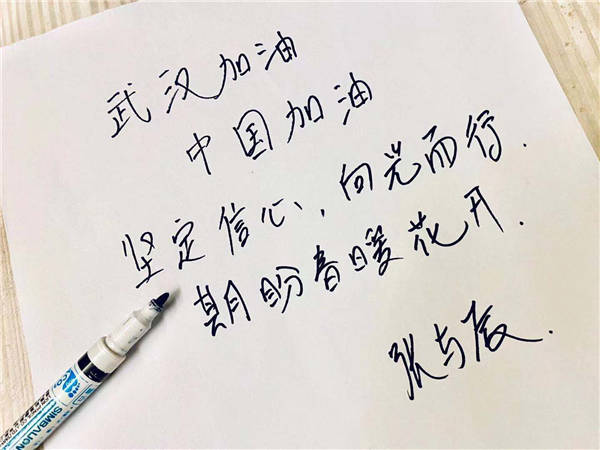 武汉加油
中国加油
坚定信心,向光而行.
期盼春暖花开.
张与辰.
SIMBALION